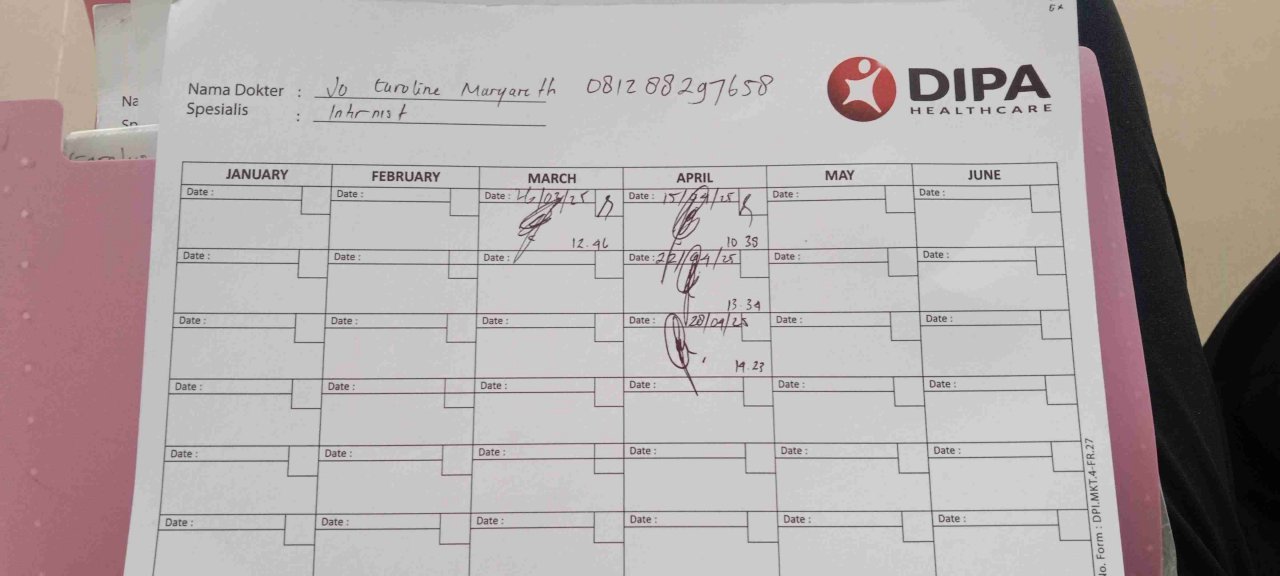 5x
Nama Dokter : Jo Caroline Margareth 081288297658
Spesialis : Internist
DIPA
HEALTHCARE
Na
Sp
JANUARY FEBRUARY MARCH APRIL MAY JUNE
Date : Date : Date : 26/03/25 Date : 15/04/25 Date : Date :
12.46 10 38
Date : Date : Date : Date : 22/04/25 Date : Date :
13.34
Date : Date : Date : Date : 28/04/25 Date : Date :
14.23
Date : Date : Date : Date : Date : Date :
Date : Date : Date : Date : Date : Date :
Date : Date : Date : Date : Date : Date :
No. Form : DPI.MKT.4-FR.27